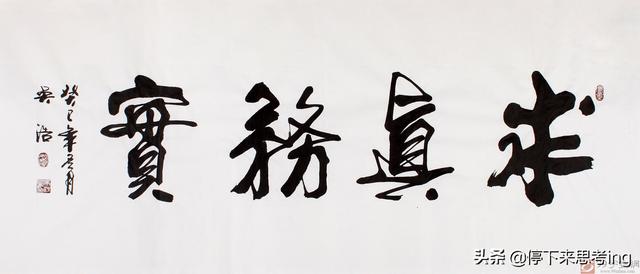 求真務實
癸巳年吉月
吳浩
头条@停下来思考ing